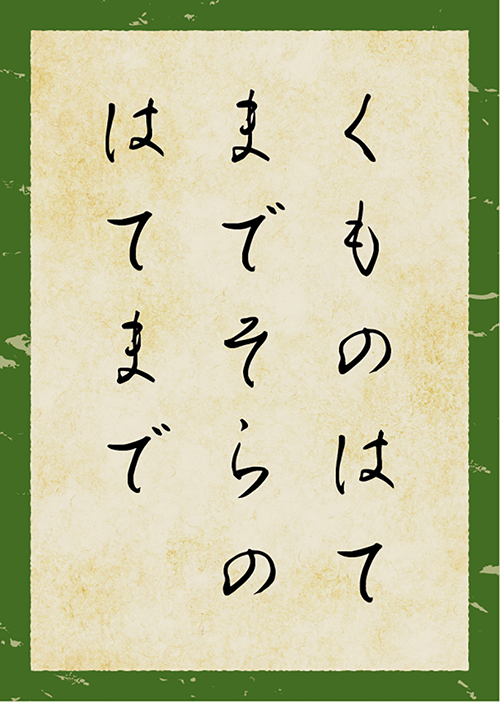 くものはて
までそらの
はてまで